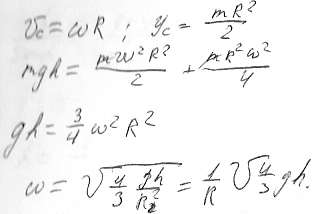 υc = ωR ; Yc = mR²/2
mgh = mω²R²/2 + mR²ω²/4
gh = 3/4 ω²R²
ω = √(4/3 gh/R²) = 1/R √(4/3 gh).